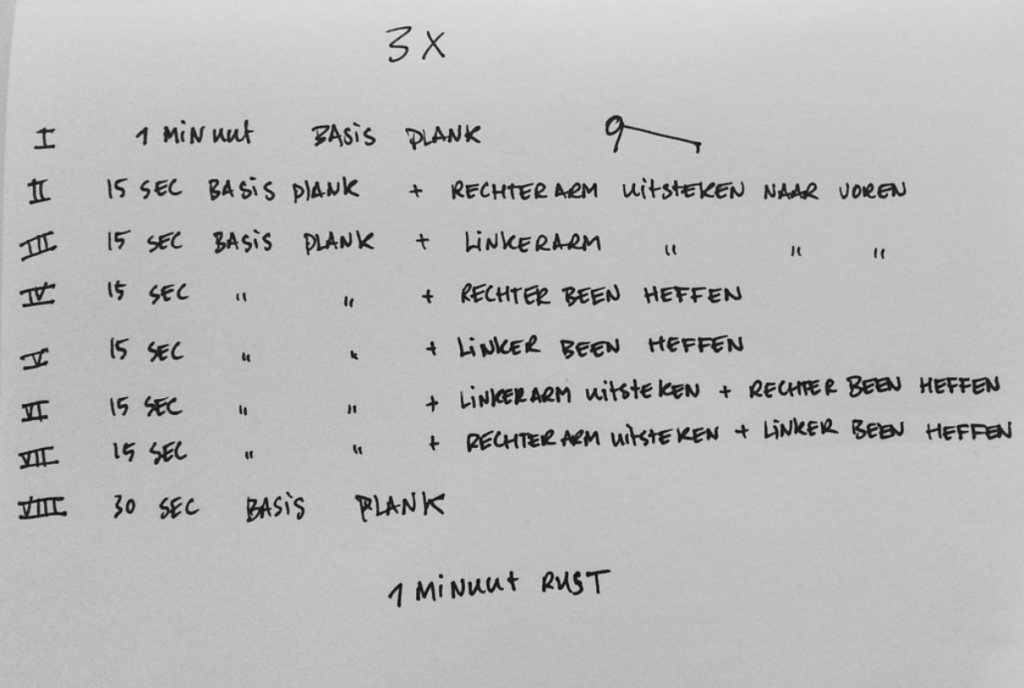 3X
I 1 MiNuut BASiS PLANK
II 15 SEC BASiS PLANK + RECHTERARM uitSTEKEN NAAR VOREN
III 15 SEC BASiS PLANK + LiNKERARM " " "
IV 15 SEC " " + RECHTER BEEN HEFFEN
V 15 SEC " " + LiNKER BEEN HEFFEN
VI 15 SEC " " + LiNKERARM uitSTEKEN + RECHTER BEEN HEFFEN
VII 15 SEC " " + RECHTERARM uitSTEKEN + LiNKER BEEN HEFFEN
VIII 30 SEC BASiS PLANK
1 MiNuut RUST